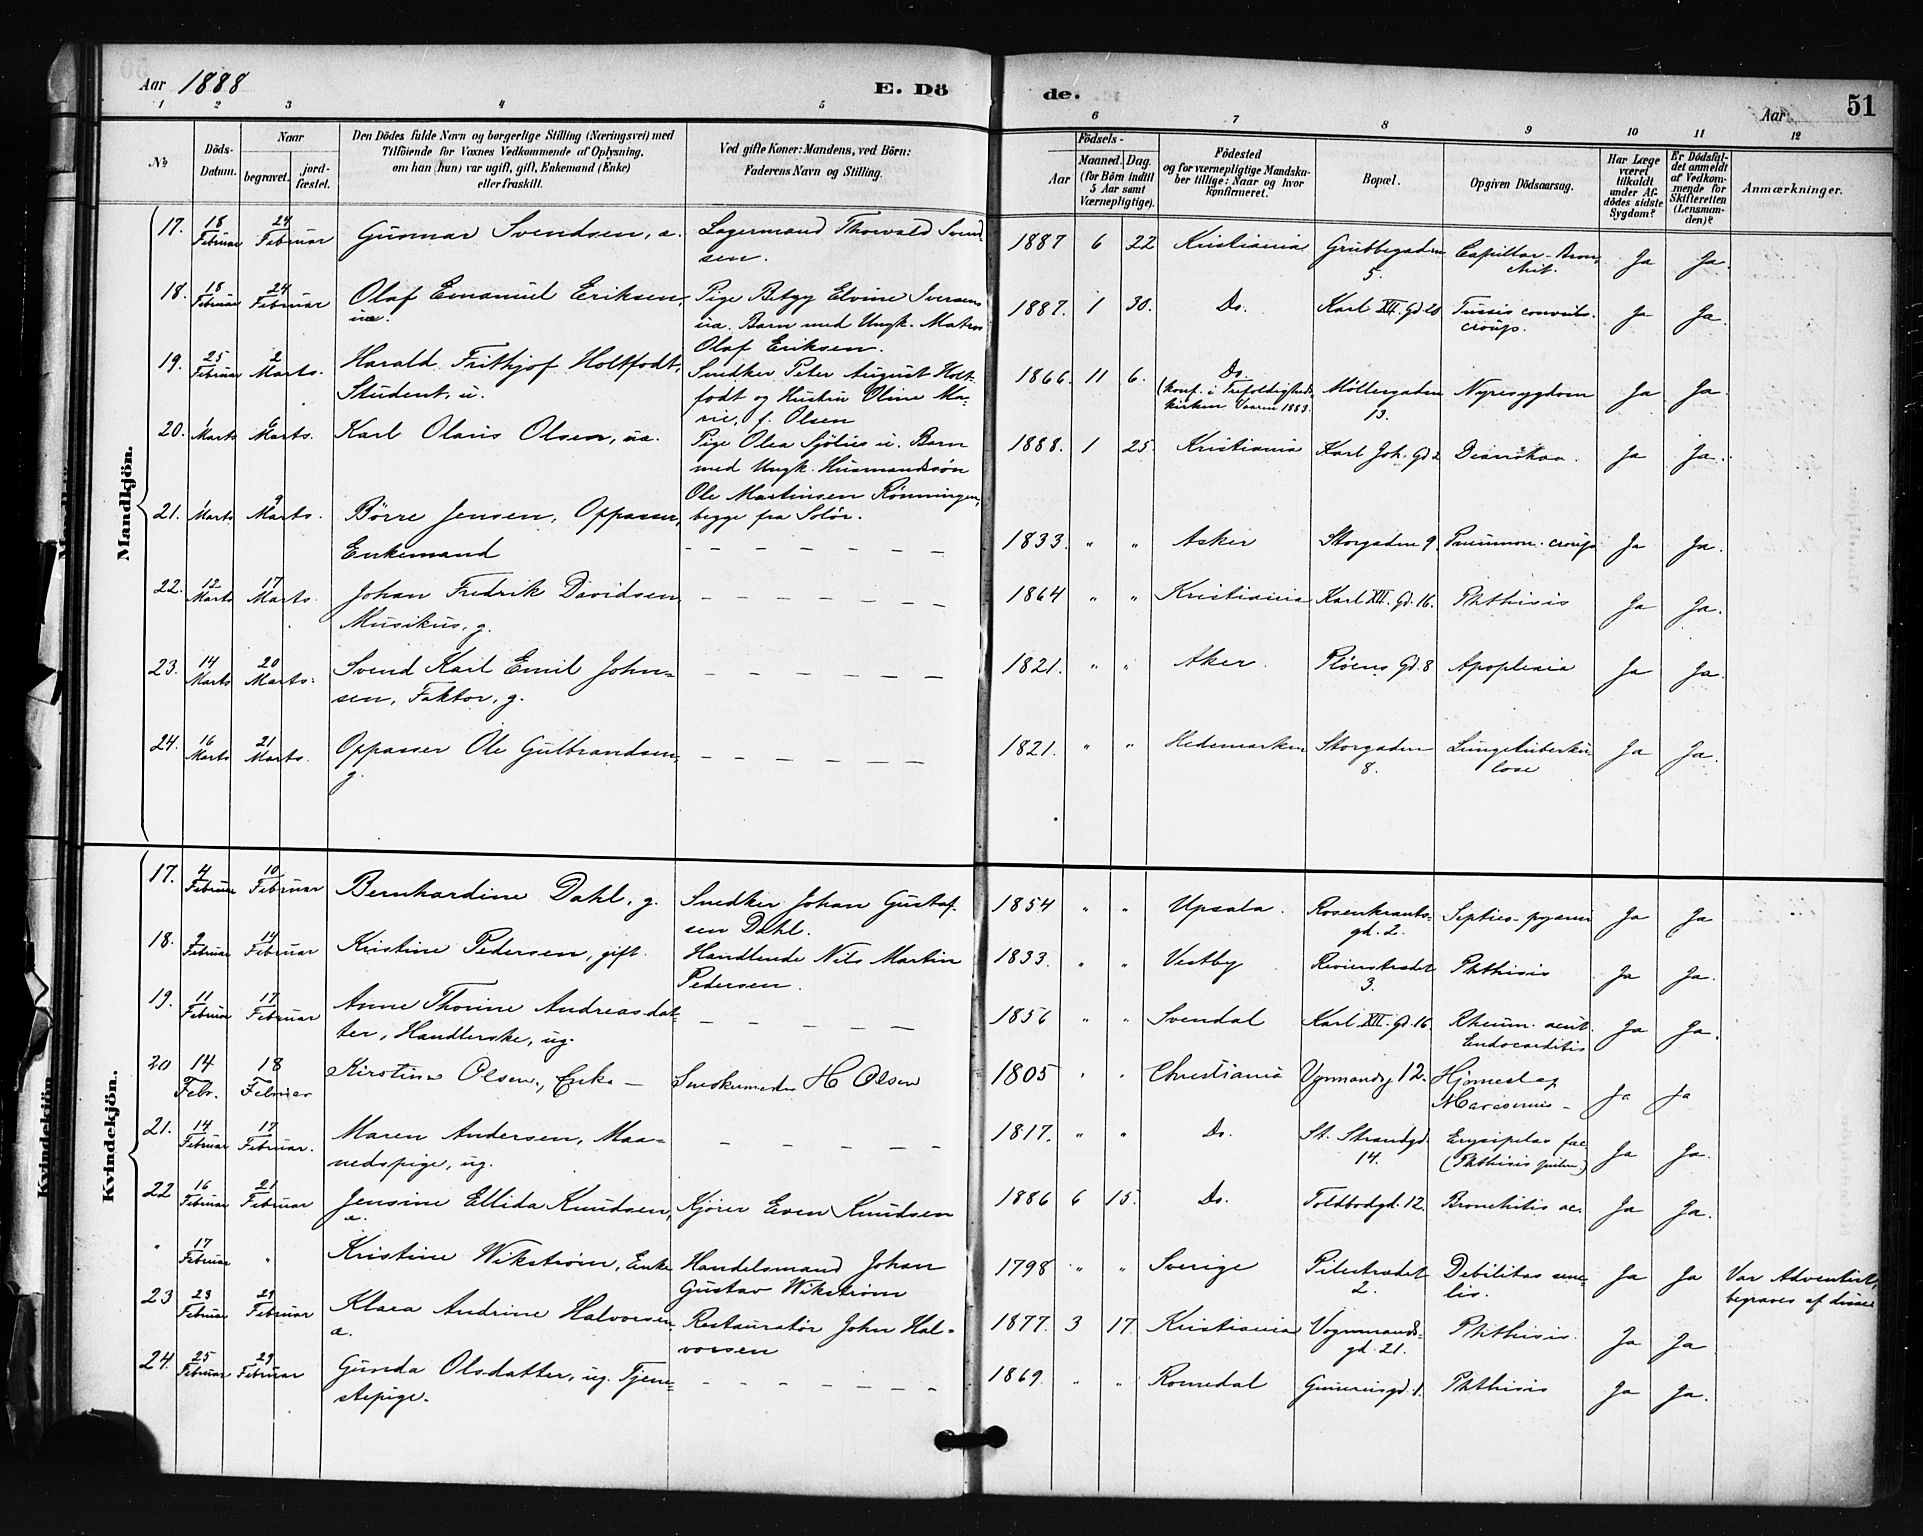 Aar 1888
E. Dö
de.
Aar
51
1 2 3 4 5 6 7 8 9 10 11 12
No
Döds-
Datum.
Naar
begravet.
jord-
fæstet.
Den Dödes fulde Navn og borgerlige Stilling (Næringsvei) med
Tilföiende for Voxnes Vedkommende af Oplysning,
om han (hun) var ugift, gift, Enkemand (Enke)
eller fraskilt.
Ved gifte Koner: Mandens, ved Börn:
Faderens Navn og Stilling.
Födsels-
Aar
Maaned. Dag.
(for Börn indtil
5 Aar samt
Værnepligtige).
Födested
og for værnepligtige Mandska-
ber tillige: Naar og hvor
konfirmeret.
Bopæl.
Opgiven Dödsaarsag.
Har Læge
været
tilkaldt
under Af-
dödes sidste
Sygdom?
Er Dödsfal-
det anmeldt
af Vedkom-
mende for
Skifteretten
(Lensman-
den)?
Anmærkninger.
Mandkjön.
17. 18 Februar 24 Februar Gunnar Svendsen, a. Lagermand Thorvald Svend- 1887 6 22 Kristiania Grubbegaden Capillar-Bron-
sen. 5. chit. Ja Ja.
18. 18 Februar 24 Februar Olaf Emanuel Eriksen, Pige Betzy Elvine Iversens 1887. 1 30. Do. Karl XII. Gd 20 Tussis convuls. Ja Ja.
ua. ua. Barn med Ungk. Matros croup.
Olaf Eriksen.
19. 25 Februar 2 Marts. Harald Frithjof Holtfodt, Snedker Peter August Holt- 1866. 11 6. Do. Möllergaden Nyresygdom Ja Ja.
Student, u. fodt og Hustru Oline Ma- (konf. i Trefoldigheds- 13.
rie, f. Olsen kirken Vaaren 1883.
20. Marts Marts. Karl Olaus Olsen, ua. Pige Olea Sjölies u. Barn 1888. 1 25. Kristiania Karl Joh. Gd 2 Diarrhoea. Ja Ja.
med Ungk. Husmandssøn
Ole Martinsen Rønningen,
21. Marts 9 Marts. Børre Jensen, Oppasser, begge fra Solör.
Enkemand 1833. " " Asker Storgaden 9. Pneumon. croup. Ja Ja.
22. 12 Marts 17 Marts. Johan Fredrik Davidsen, 1864 " " Kristiania Karl XII. Gd. 16. Phthisis Ja Ja.
Musikus, g.
23. 14 Marts 20 Marts. Svend Karl Emil John- 1821. " " Aker. Pløens Gd. 8 Apoplexia Ja Ja.
sen, Faktor, g.
24. 16 Marts 21 Marts. Oppasser Ole Gulbrandsen, 1821. " " Hedemarken Storgaden Lungetuberku- Ja Ja.
g. 8. lose
Kvindekjön.
17. 4 Februar 10 Februar Bernhardine Dahl, g. Snedker Johan Gustaf- 1854 " " Upsala. Rosenkrants- Septico-pyæmi Ja Ja
sen Dahl. gd. 2.
18. 9 Februar 14 Februar Kristine Pedersen, gift. Handlende Nils Martin 1833. " " Vestby Revierstrædet Phthisis Ja Ja.
Pedersen. 3.
19. 11 Februar 17 Februar Anne Thorine Andreasdat- 1856 " " Svendal Karl XII. Gd. 16. Rheum. acut. Ja Ja.
ter, Handlerske, ug. Endocarditis
20 14 Febr. 18 Februar Kirstine Olsen, Enke — Snedkermester H Olsen 1805 " " Christiania Vognmandsg 12. Hjerneslag
Marasmus — Ja Ja
21. 14 Februar 17 Februar. Maren Andersen, Maa- 1817. " " Do. St. Strandgd. Erysipelas fac. Ja Ja.
nedspige, ug. 14. (Phthisis pulm.)
22 16 Februar 21 Februar Jensine Ellida Knudsen, Kjører Even Knudsen 1886 6 15. Do. Toldbodgd. 12. Bronchitis ac. Ja Ja.
a.
" 17 Februar " Kristine Wikstrøm, Enke Handelsmand Johan 1798 " " Sverige Pilestrædet Debilitas seni- Ja Ja Var Adventist,
Gustav Wikstrøm 2. lis. begraves af disse
23 23 Februar 28 Februar Klara Andrine Halvorsen, Restauratør John Hal- 1877. 3 17. Kristiania Vognmands- Phthisis. Ja Ja
a. vorsen gd. 21.
24. 25 Februar 29 Februar Gunda Olsdatter, ug. Tjene- 1869. " " Romedal Gd. 1. Phthisis Ja Ja.
stepige.